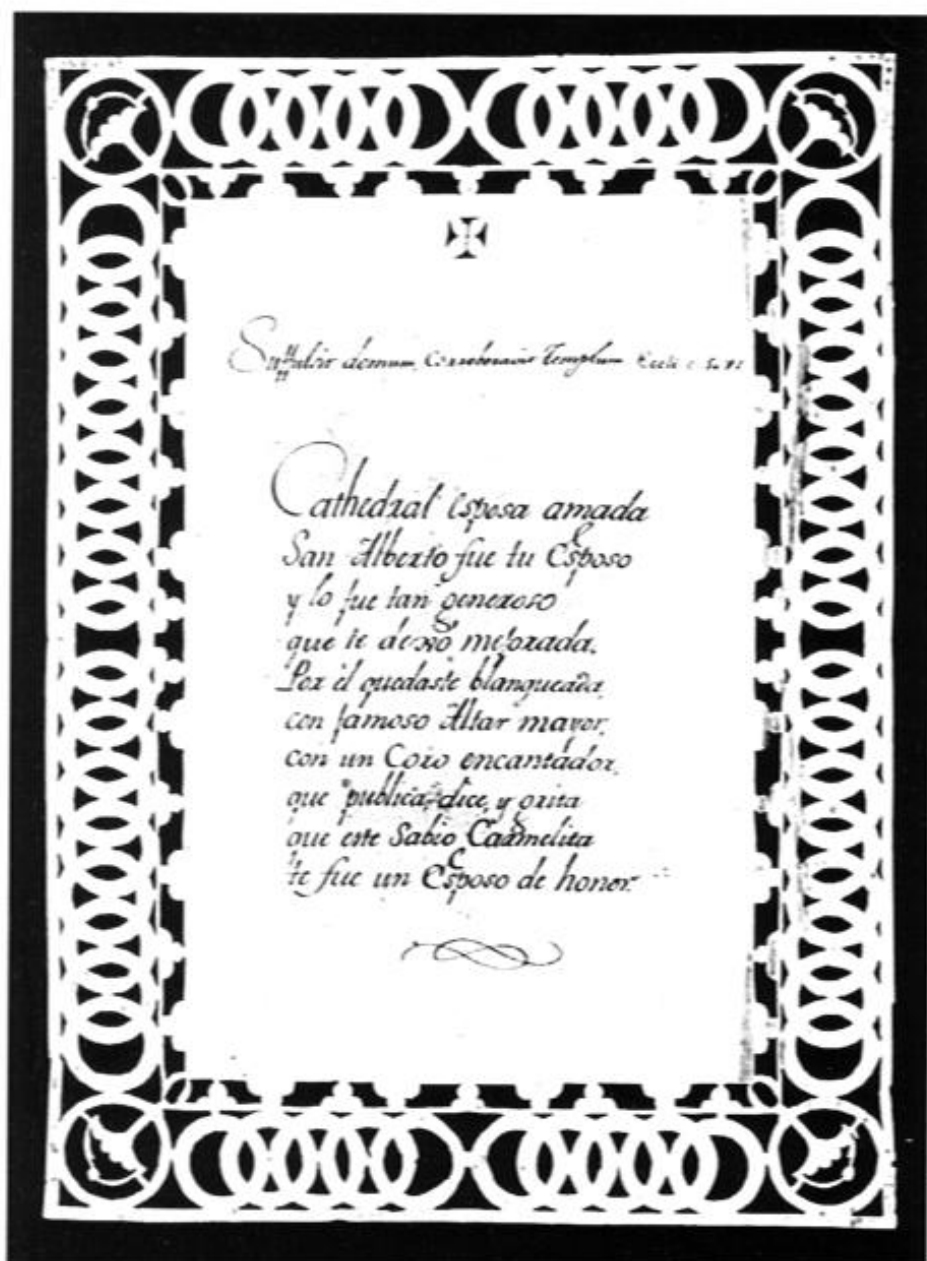 Suffulsit domum, Corroboravit Templum Eccli c. 50 v 1
Cathedral Esposa amada
San Alberto fue tu Esposo
y lo fue tan generoso
que te dexó mejorada.
Por él quedaste blanqueada,
con famoso Altar mayor,
con un Coro encantador,
que publica, dice, y grita
que este Sabio Carmelita
te fue un Esposo de honor.